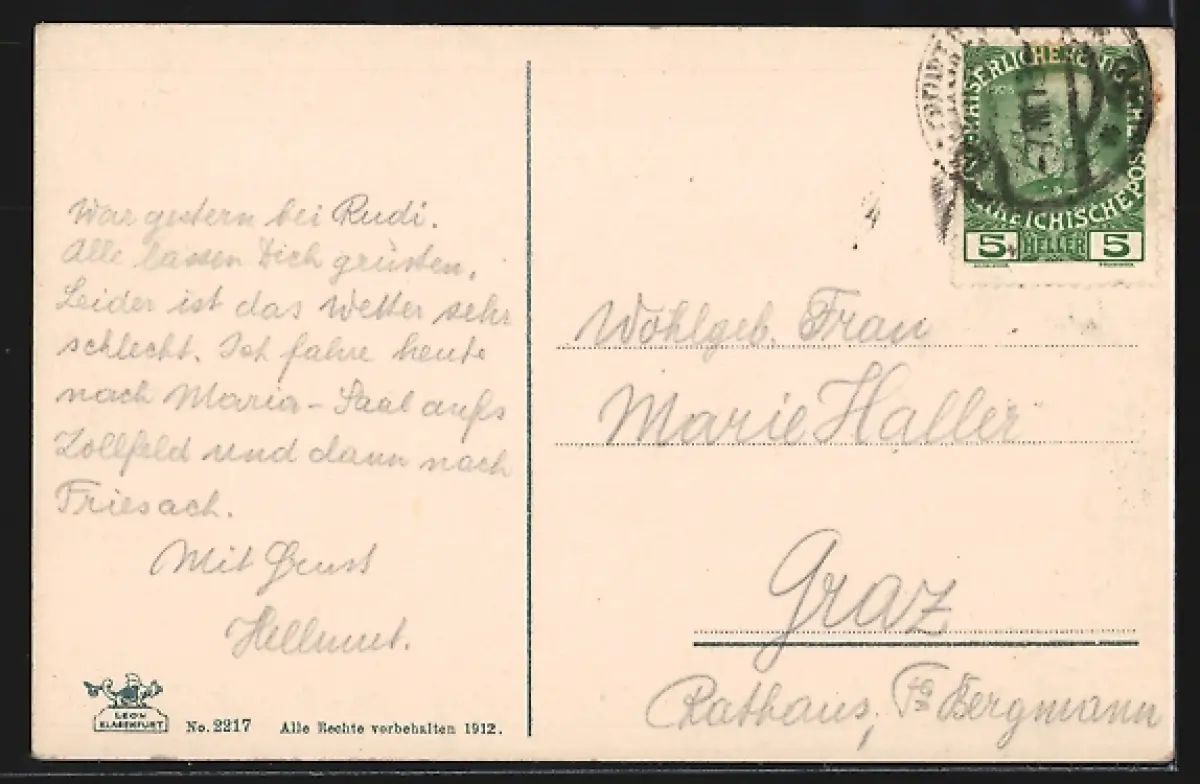 War gestern bei Rudi.
Alle lassen Dich grüssen.
Leider ist das Wetter sehr
schlecht. Ich fahre heute
nach Maria-Saal aufs
Zollfeld und dann nach
Friesach.
Mit Gruss
Hellmut.
LEON
KLAGENFURT
No. 2217 Alle Rechte vorbehalten 1912.
5 HELLER 5
Wohlgeb. Frau
Marie Haller
Graz
Rathaus, Fa Bergmann